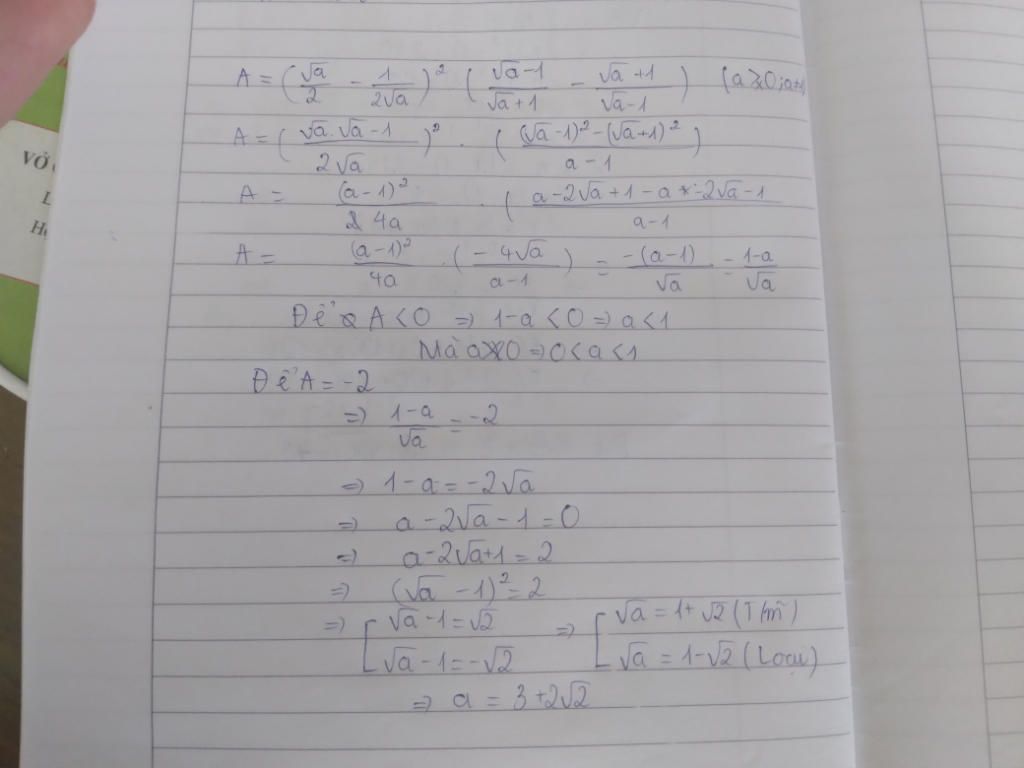 VỞ
L
H
A = (√a/2 - 1/2√a)² (√a-1/√a+1 - √a+1/√a-1) (a>0; a≠1)
A = (√a.√a-1/2√a)² . ((√a-1)²-(√a+1)²/a-1)
A = (a-1)²/4a . (a-2√a+1-a-2√a-1/a-1
A = (a-1)²/4a . (-4√a/a-1) = -(a-1)/√a = 1-a/√a
Để A<0 => 1-a<0 => a<1
Mà a>0 => 0<a<1
Để A = -2
=> 1-a/√a = -2
=> 1-a = -2√a
=> a-2√a-1=0
=> a-2√a+1=2
=> (√a-1)²=2
=> [√a-1=√2 => [√a = 1+√2 (T/m)
√a-1=-√2 √a = 1-√2 (Loại)
=> a = 3+2√2